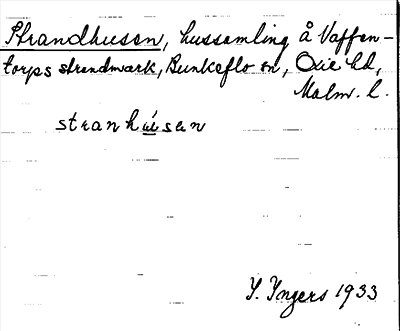 Strandhusen, hussamling å Vaffen-
torps strandmark, Bunkeflo sn, Oxie hd,
Malm. l.
stranhúsen
I. Ingers 1933